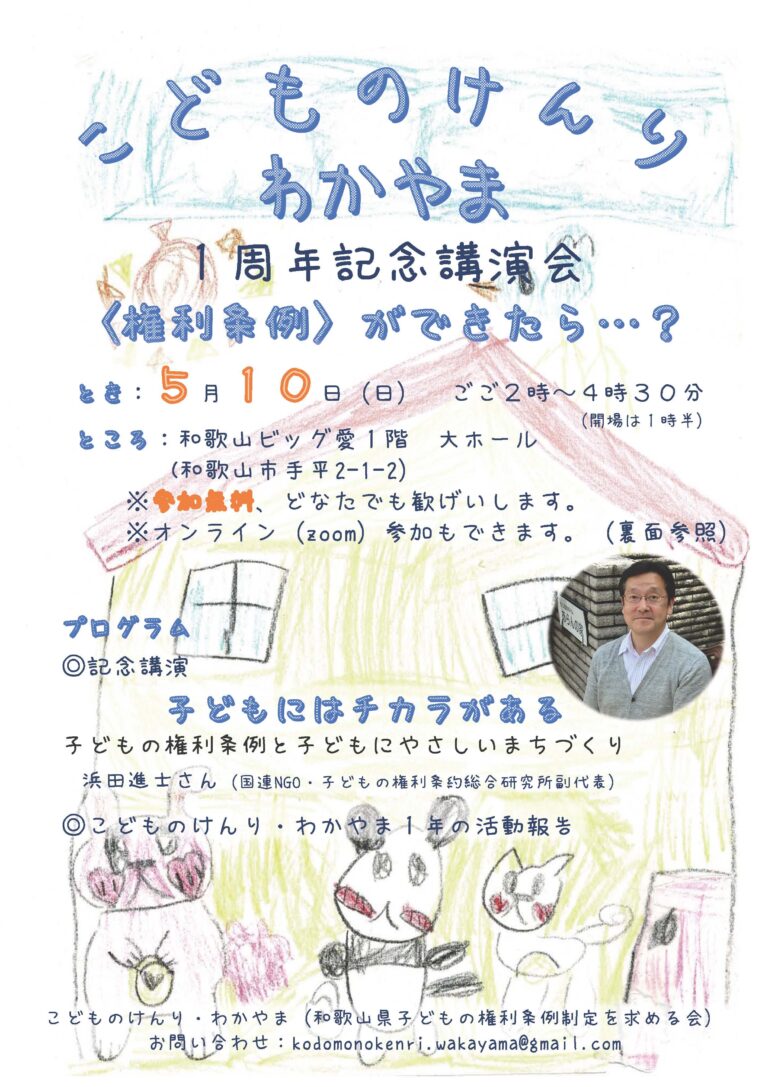 こどものけんり
わかやま
1周年記念講演会
〈権利条例〉ができたら…？
とき：5月10日（日）　ごご2時～4時30分
（開場は1時半）
ところ：和歌山ビッグ愛1階　大ホール
（和歌山市手平2-1-2）
※参加無料、どなたでも歓げいします。
※オンライン（zoom）参加もできます。（裏面参照）
プログラム
◎記念講演
子どもにはチカラがある
子どもの権利条例と子どもにやさしいまちづくり
浜田進士さん（国連NGO・子どもの権利条約総合研究所副代表）
◎こどものけんり・わかやま1年の活動報告
こどものけんり・わかやま（和歌山県子どもの権利条例制定を求める会）
お問い合わせ：kodomonokenri.wakayama@gmail.com